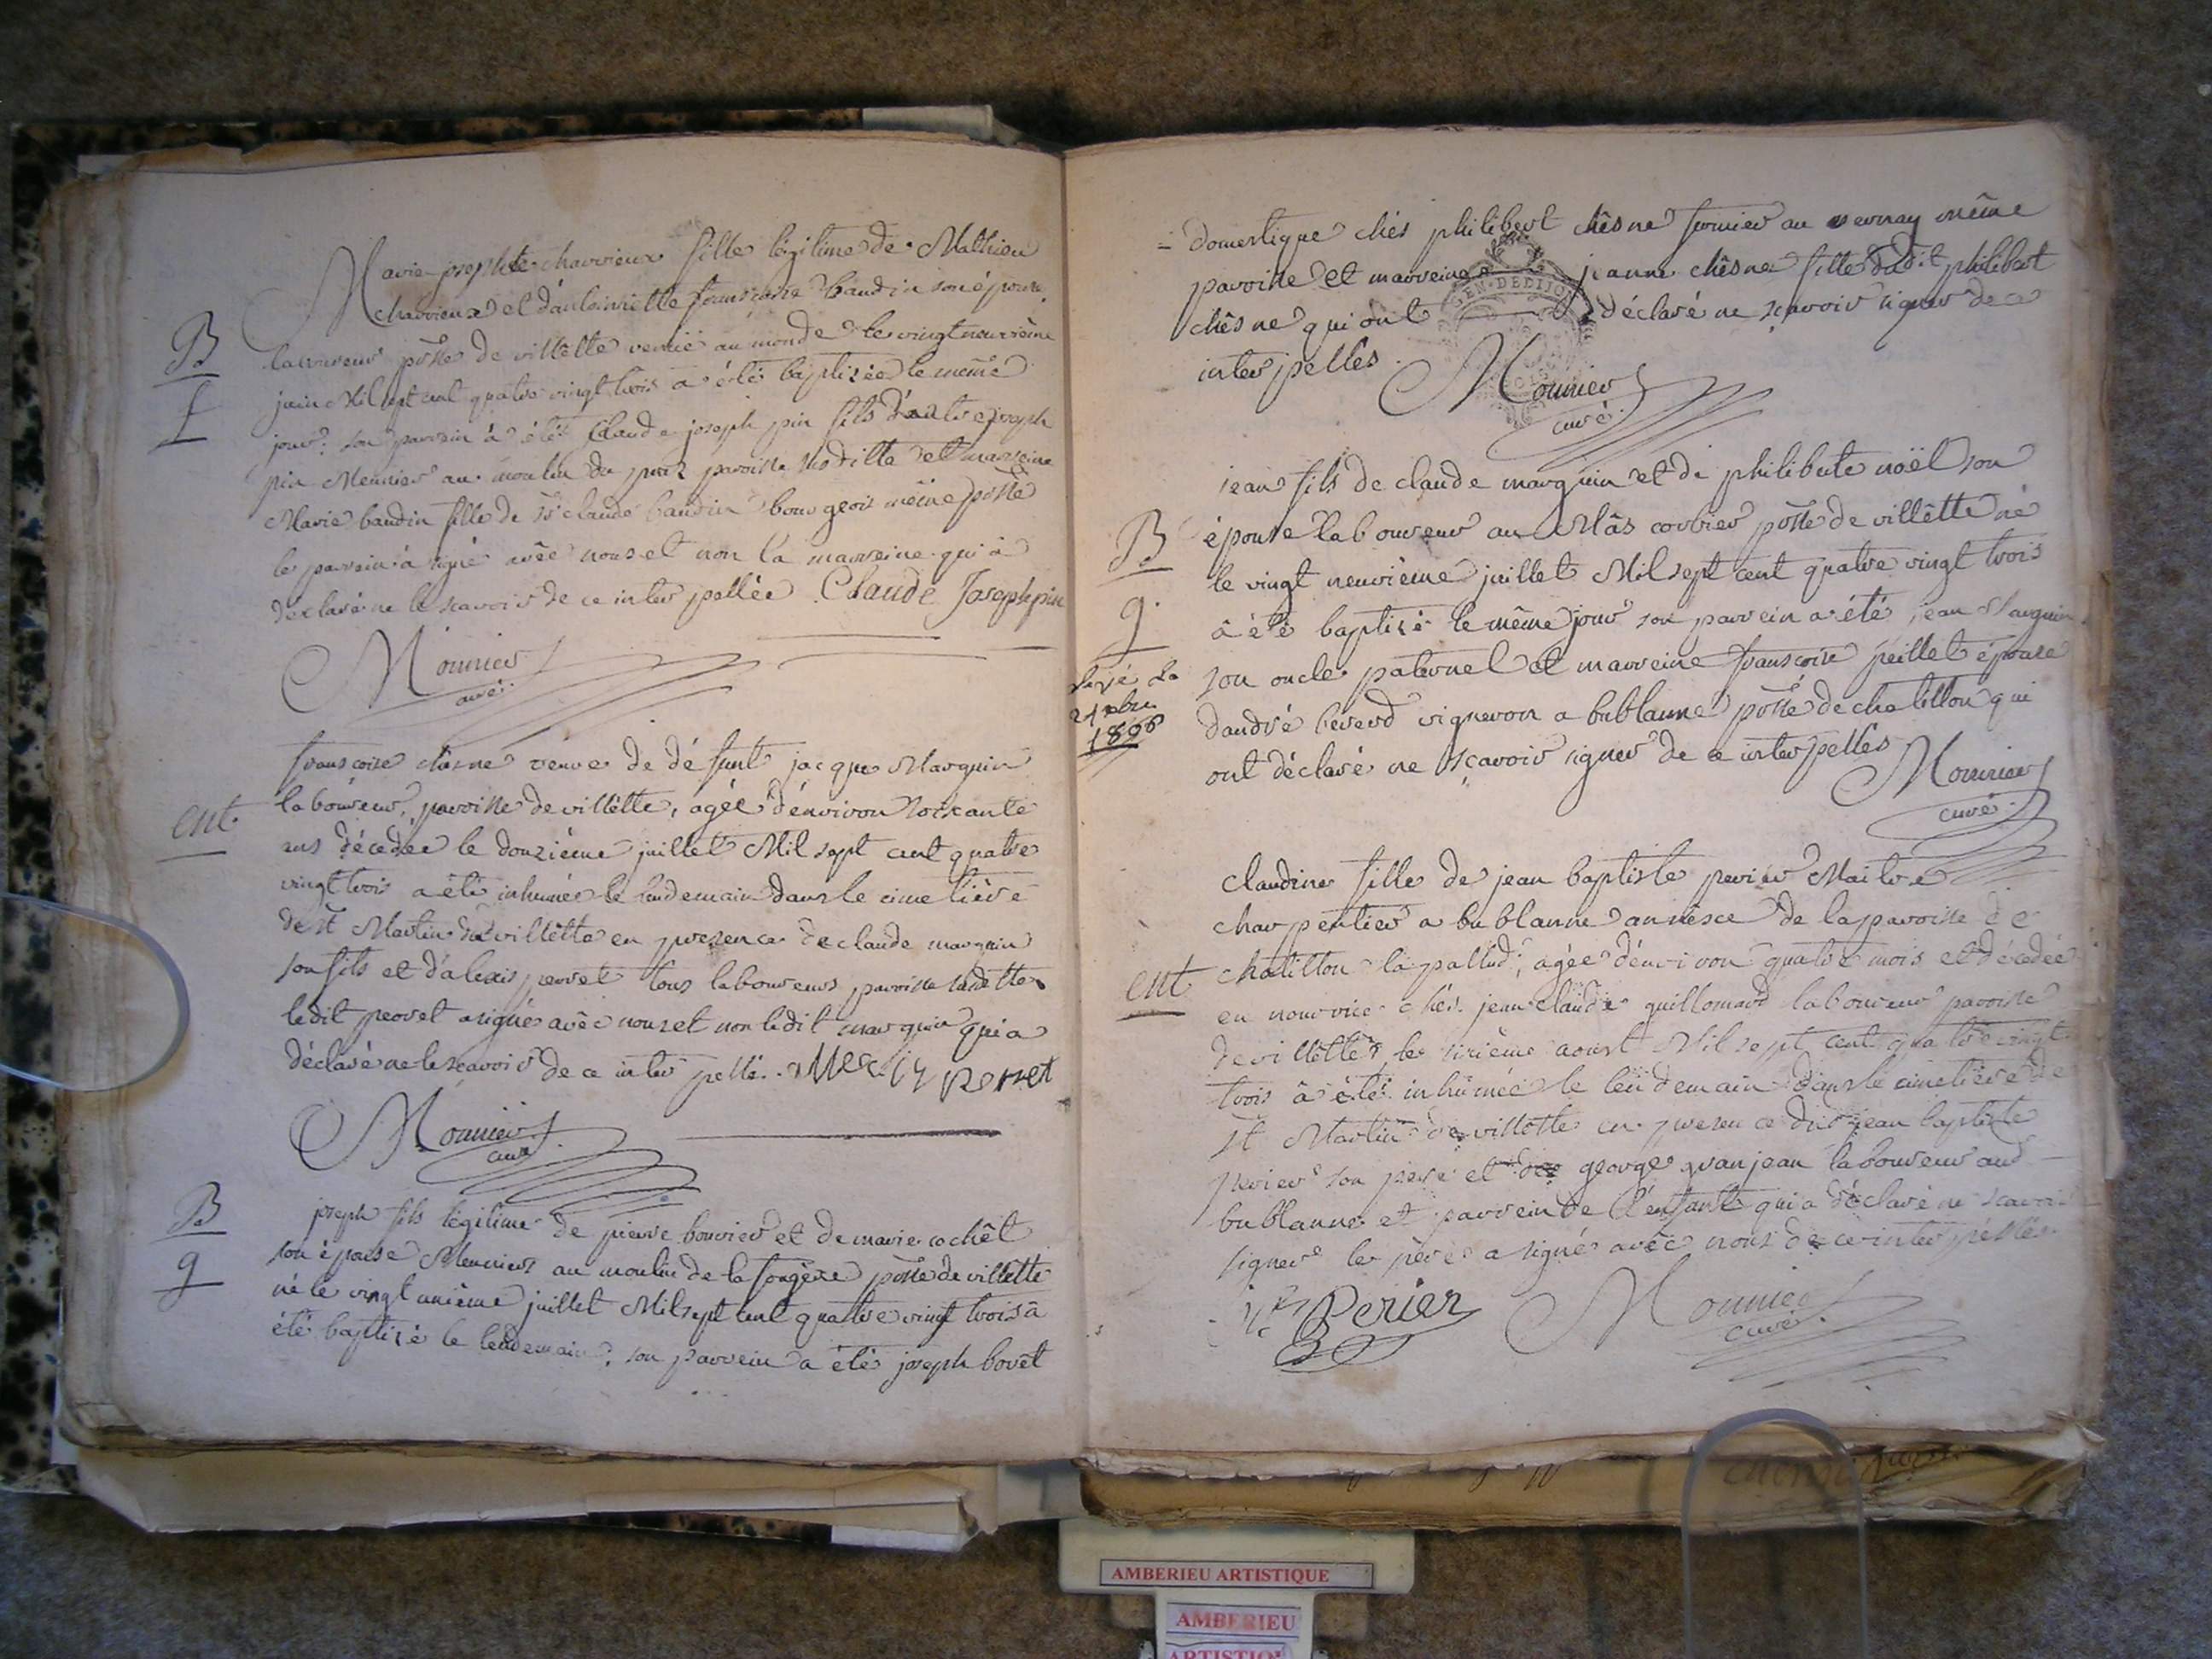 Marie josephte charvieux fille légitime de Mathieu
charvieux et d'antoinette françoise baudin son épouse
B
laboureur pôsse de villette venüe au monde le vingt neuvième
f
juin Mil sept cent quatre vingt trois a été baptisée le même
jour. son parrein à été Claude joseph pin fils d'autre joseph
pin Meunier au moulin du paroisse susditte et marreine
Marie baudin fille de sr claude baudin bourgeois même pôsse
le parrein à signé avêc nous et non la marreine qui à
déclaré ne le scavoir de ce inter pellée Claude Joseph pin
Mounier
curé
françoise chêsne veuve de dé funt jacque Marguin
ent
laboureur, paroisse de villette, agée d'environ soixante
ans décedée le douzième juillet Mil sept cent quatre
vingt trois a été inhumée le lendemain dans le cime tière
de st Martin de villette en presence de claude marguin
son fils et d'alexis perret tous laboureurs paroisse sudette
ledit perret a signé avêc nous et non ledit marguin qui a
déclaré ne le scavoir de ce inter pellé. Perret
Mounier
curé
B
joseph fils légitime de pierre bouvier et de marie cochêt
g
son épouse Meuniers au moulin de la fougère pôsse de villette
né le vingt unième juillet Mil sept cent quatre vingt trois à
été baptisé le lendemain. son parrein a été joseph bovêt
= domestique chés philibert chêsne fermier au vernay même
paroisse et marreine jeanne chêsne fille dudit philibert
GEN. DE DIJON
chêsne qui ont déclaré ne scavoir signer de ce
inter pellés
Mounier
curé
jean fils de claude marguin et de philiberte noël son
B
épouse laboureur au Mâs corbier pôsse de villêtte né
le vingt neuvième juillet Mil sept cent quatre vingt trois
g
â été baptisé le même jour son parrein a été jean Marguin
son oncle paternel et marreine françoise peillet épouse
21 xbre
1806
d'andré vigneron a bublanne pôsse de chatillon qui
ont déclaré ne sçavoir signer de ce inter pellés
Mounier
curé
claudine fille de jean baptiste perier Maitre
charpentier a bublanne annêxce de la paroisse de
ent
chatillon la pallud, agée d'environ quatre mois et décedée
en nourrice chés jean claude guillomard laboureur paroisse
de villêtte le sixième aoust Mil sept cent quatre vingt
trois â été inhûmée le lendemain dans le cimetière de
st Martin de villette en presen ce du jean baptiste
perier son père et de george granjean laboureur aud
bublanne et parrein de l'enfant qui a déclaré ne scavoir
signer le père a signé avêc nous de ce inter pellés
Perier
Mounier
curé
AMBERIEU ARTISTIQUE
AMBERIEU
ARTISTIQUE